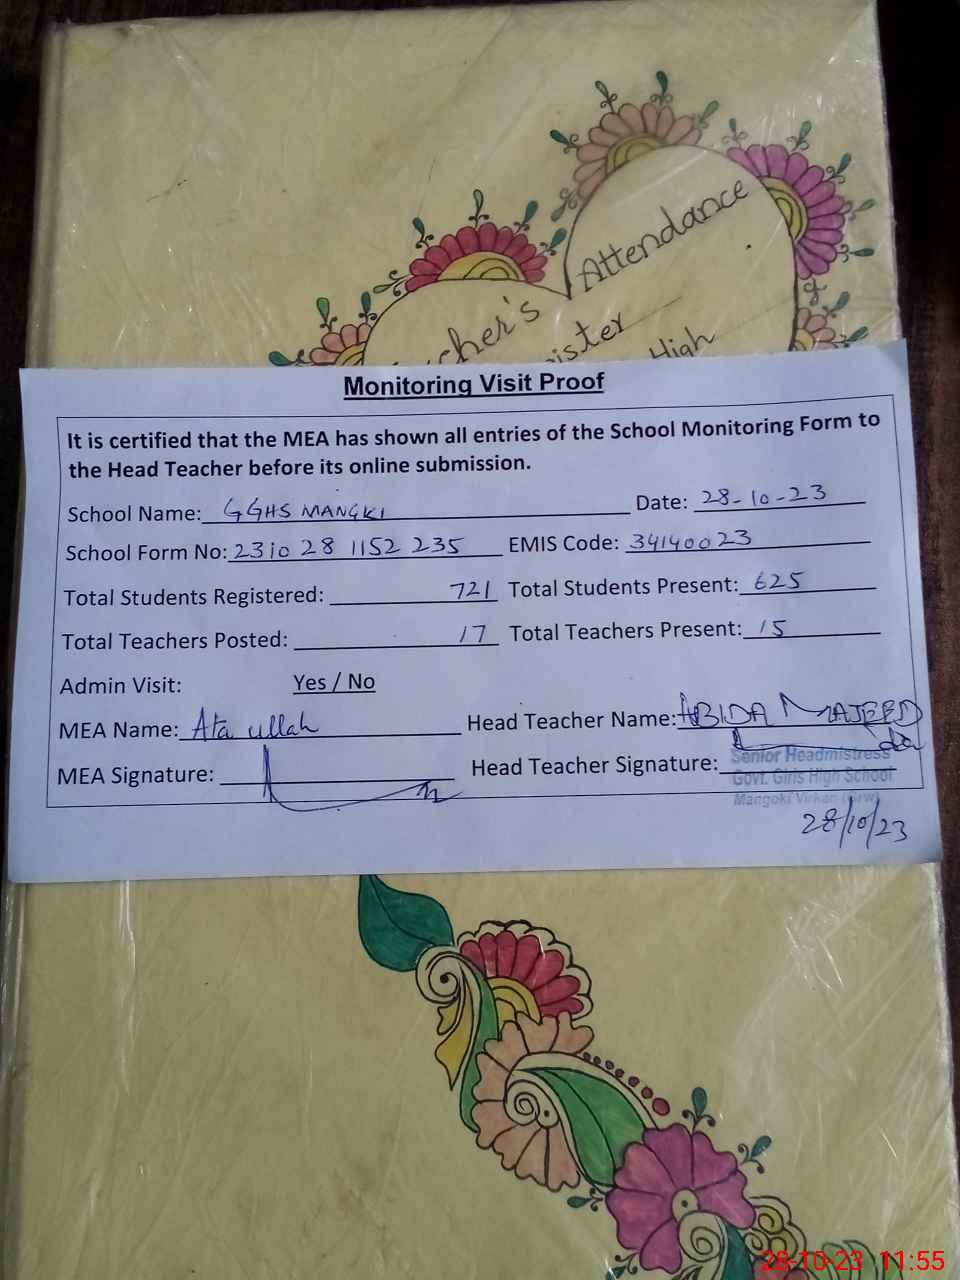 Attendance
cher's
ister
High
Monitoring Visit Proof
It is certified that the MEA has shown all entries of the School Monitoring Form to
the Head Teacher before its online submission.
School Name: GGHS MANGKI Date: 28-10-23
School Form No: 2310 28 1152 235 EMIS Code: 34140023
Total Students Registered: 721 Total Students Present: 625
Total Teachers Posted: 17 Total Teachers Present: 15
Admin Visit: Yes / No
MEA Name: Ata ullah Head Teacher Name: ABIDA MAJEED
MEA Signature: Head Teacher Signature:
Senior Headmistress
Govt. Girls High School
Mangoki Virkan (Grw)
28/10/23
28-10-23 11:55